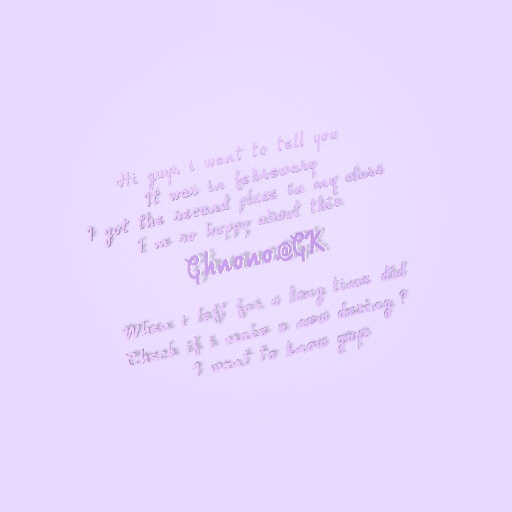 Hi guys i want to tell you
It was in februwary
I got the second place in my class
I me so happy about this
Ghnono@GK
When i left for a long time did
Check if i make a new desing ?
I want to know guys